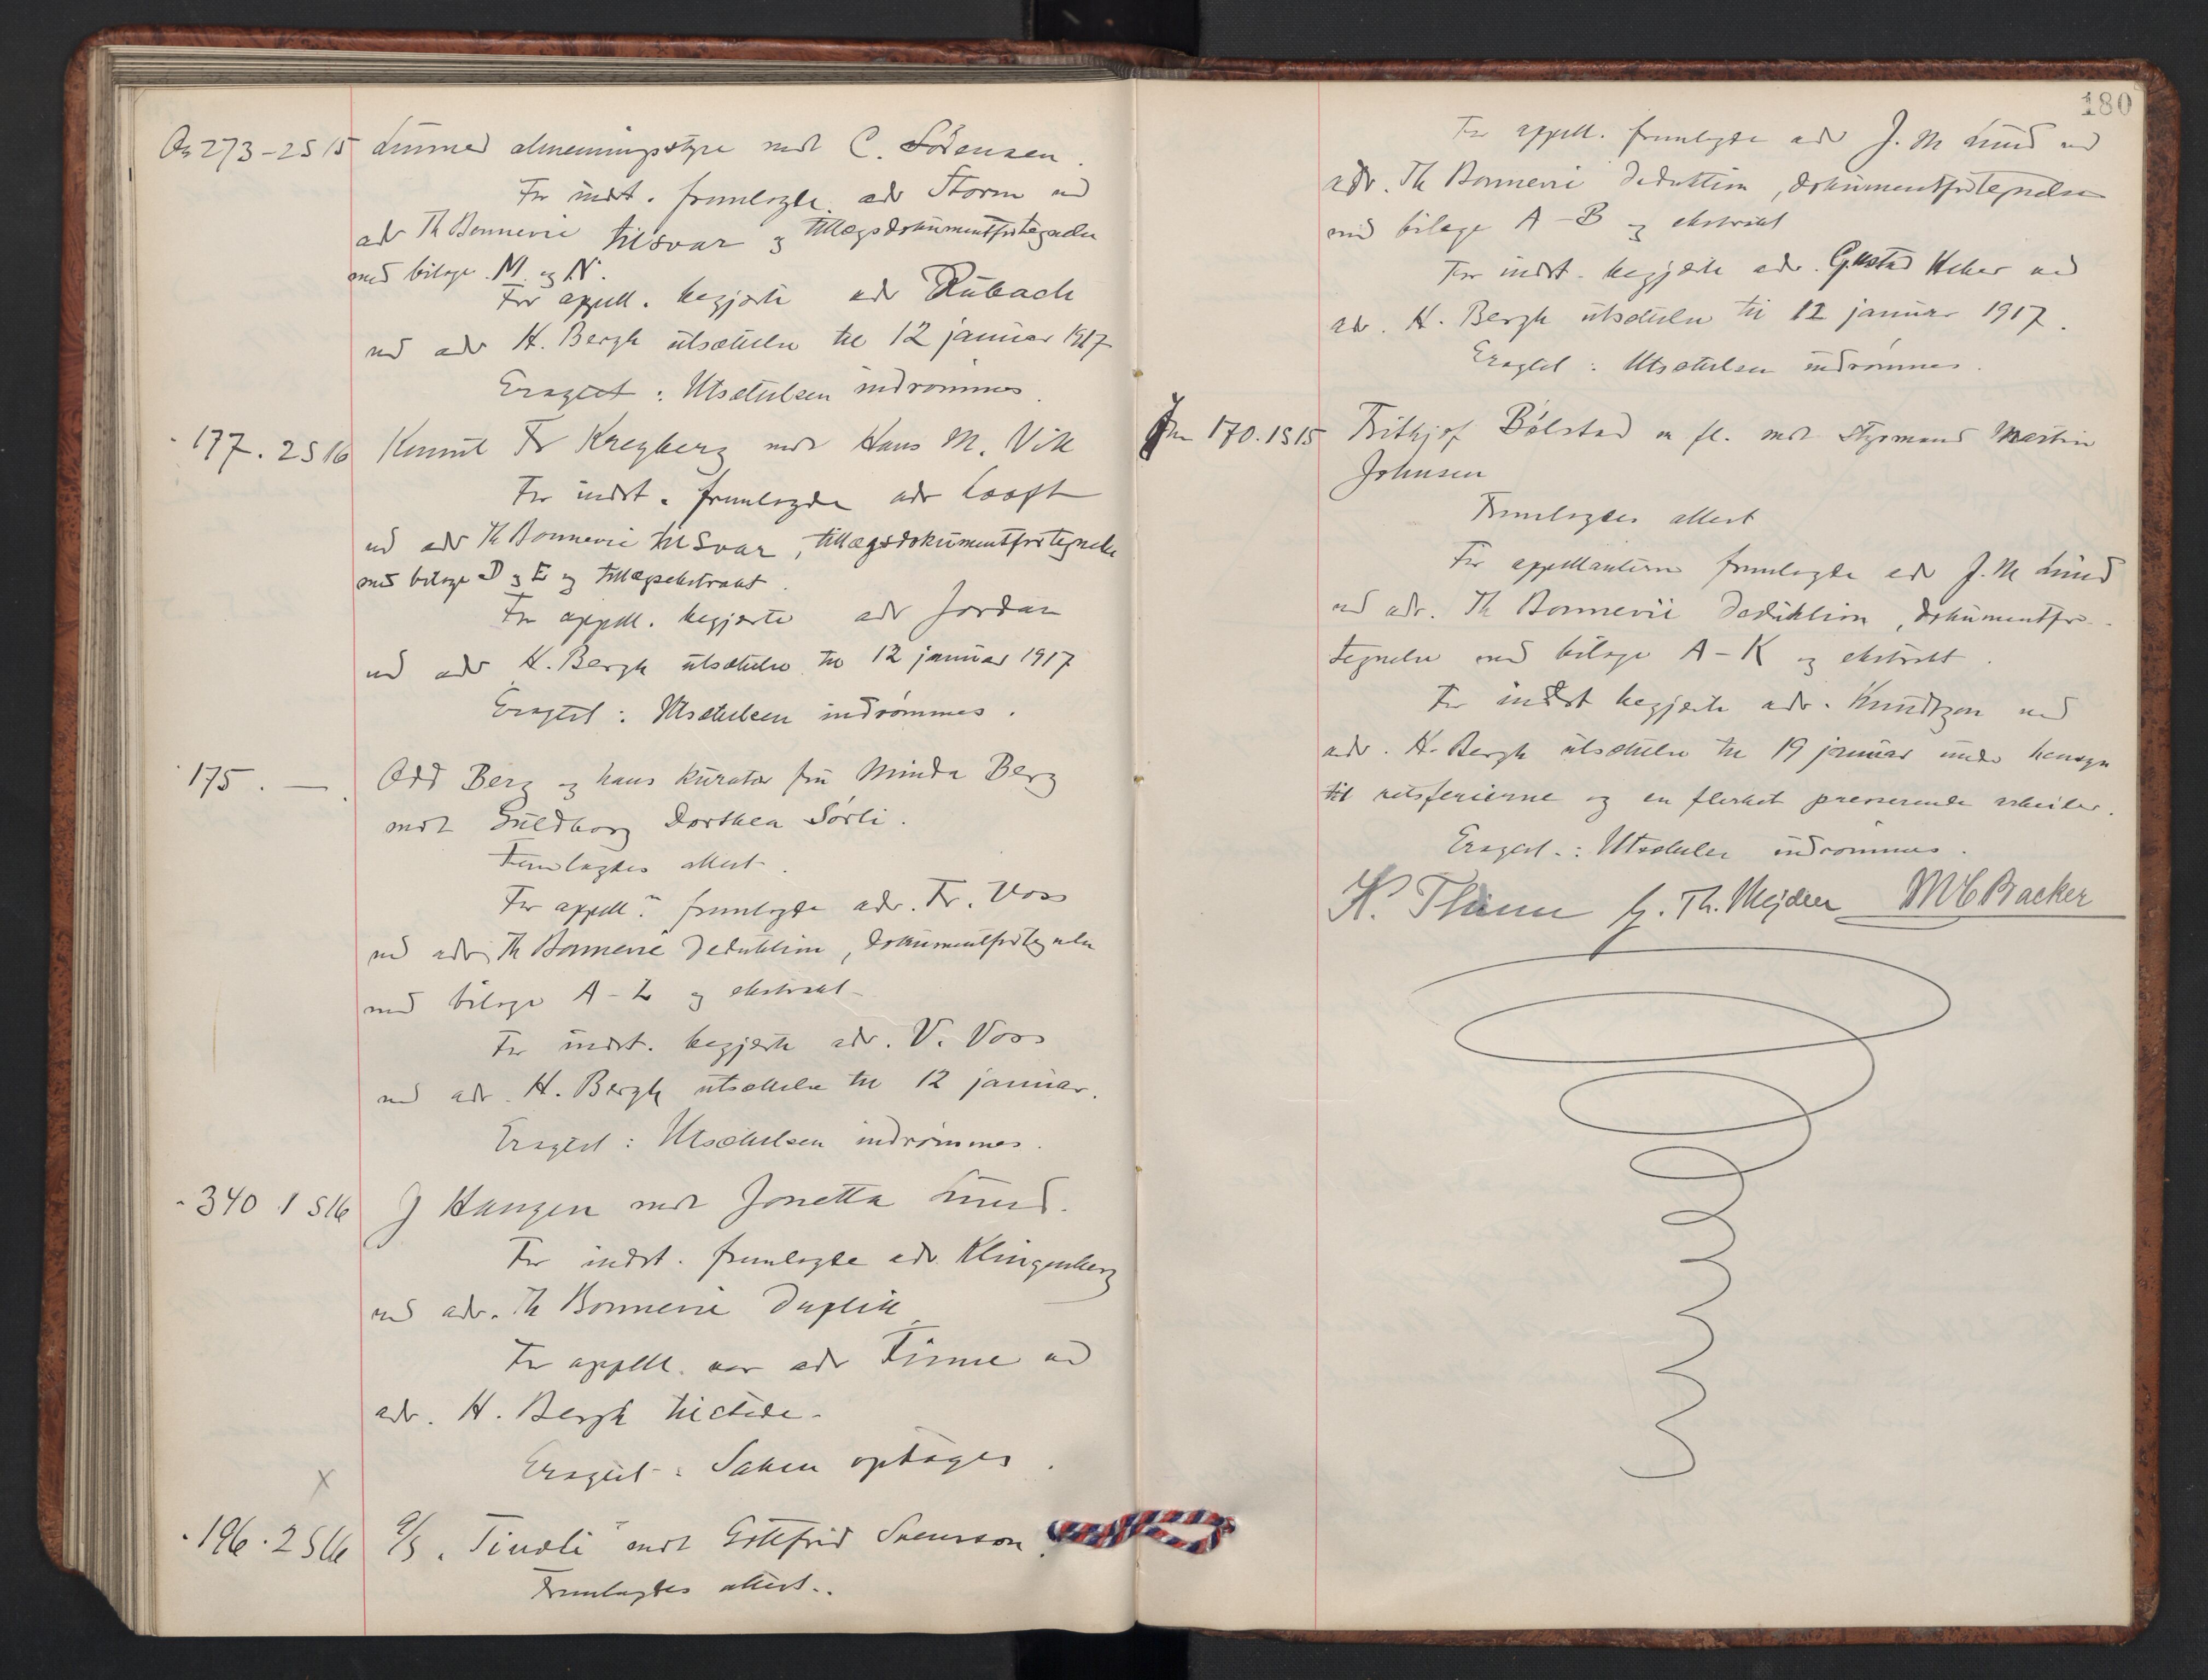 Os 273 - 2 S 15 Lunner almenningsstyre mot C. Sörensen.
For indst. fremlagde adv Storm ved
adv Th Bonnevie tilsvar og tillægsdokumentfortegnelse
med bilage M og N.
For appell. begjærte adv Rubach
ved adv H. Bergh utsættelse til 12 januar 1917
Eragtet: Utsættelsen indrömmes.
177. 2 S 16 Konsul Fr Kreyberg mot Hans M. Vik
For indst. fremlagde adv Looft
ved adv Th Bonnevie tilsvar, tillægsdokumentfortegnelse
med bilage D og E og tillægsekstrakt.
For appell. begjærte adv Jordan
ved adv H. Bergh utsættelse til 12 januar 1917
Eragtet: Utsættelsen indrömmes.
175. — Odd Berg og hans kurator fru Minda Berg
mot Guldborg Dorthea Sörli.
Fremlagdes attest.
For appell. fremlagde adv. Fr. Voss
ved adv Th Bonnevie deduktion, dokumentfortegnelse
med bilage A - L og ekstrakt
For indst. begjærte adv. V. Voss
ved adv. H. Bergh utsættelse til 12 januar.
Eragtet: Utsættelsen indrömmes.
340 1 S 16 J Haugen mot Jonetta Lund.
For indst. fremlagde adv. Klingenberg
ved adv. Th Bonnevie duplik
For appell. var adv Finne ved
adv. H. Bergh tilstede.
Eragtet: Saken optages.
X
196. 2 S 16 A/S "Tivoli" mot Gottfrid Svensson.
Fremlagdes attest.
180
For appell. fremlagde adv J. M Lund ved
adv. Th Bonnevie deduktion, dokumentfortegnelse
med bilage A - B og ekstrakt
For indst. begjærte adv. Gustad Heber ved
adv. H. Bergh utsættelse til 12 januar 1917.
Eragtet: Utsættelsen indrömmes.
170. 1 S 15 Frithjof Bölstad m fl. mot styrmand Martin
Johnsen
Fremlagdes attest
For appellanterne fremlagde adv J. M Lund
ved adv. Th Bonnevie deduktion, dokumentfor-
tegnelse med bilage A - K og ekstrakt.
For indst begjærte adv. Knudtzon ved
adv. H. Bergh utsættelse til 19 januar under hensyn
til retsferierne og en flerhet presserende arbeider.
Eragtet: Utsættelsen indrömmes.
K. Thinn Th. Mejdell M C Backer